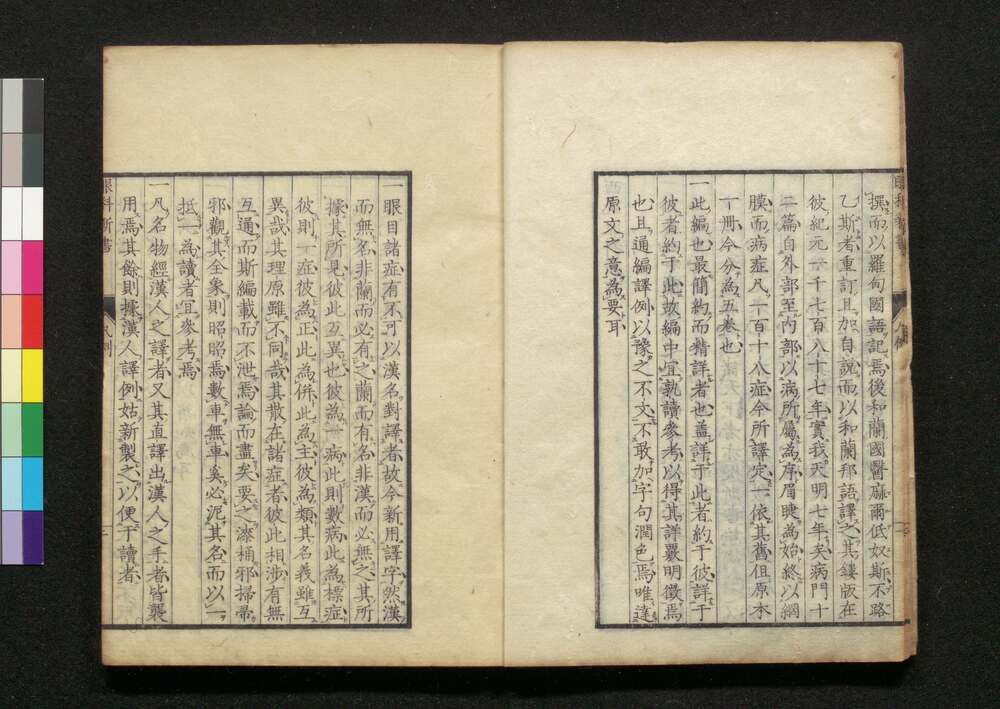 撰而以羅甸國語記焉後和蘭國醫麻爾低奴斯不路
乙斯者重訂且加自說而以和蘭邦語譯之其鏤版在
彼紀元一千七百八十七年實我天明七年矣病門十
二篇自外部至內部以病所屬為序眉睫為始終以網
膜而病症凡一百十八症今所譯定一依其舊但原本
十册今分為五卷也
一此編也最簡約而精詳者也蓋詳于此者約于彼詳于
彼者約于此故編中宜孰讀參考以得其詳覈明徵焉
也且通編譯例以豫之不文不敢加字句潤色焉唯達
原文之意為要耳
一眼目諸症有不可以漢名對譯者故今新用譯字然漢
而無名非蘭而必有之蘭而有名非漢而必無之其所
據其所見彼此互異也彼為一病此則數病此為標症
彼則一症彼為正此為併此為主彼為類其名義雖互
異哉其理原雖不同哉其散在諸症者彼此相涉有無
互通而斯編載而不泄焉論而盡矣要之漆桶邪掃帚
邪觀其全象則昭昭焉數車無車奚必泥其名而以一
抵一為讀者宜參考焉
一凡名物經漢人之譯者又其直譯出漢人之手者皆襲
用焉其餘則據漢人譯例姑新製之以便于讀者
眼科新書
凡例
二